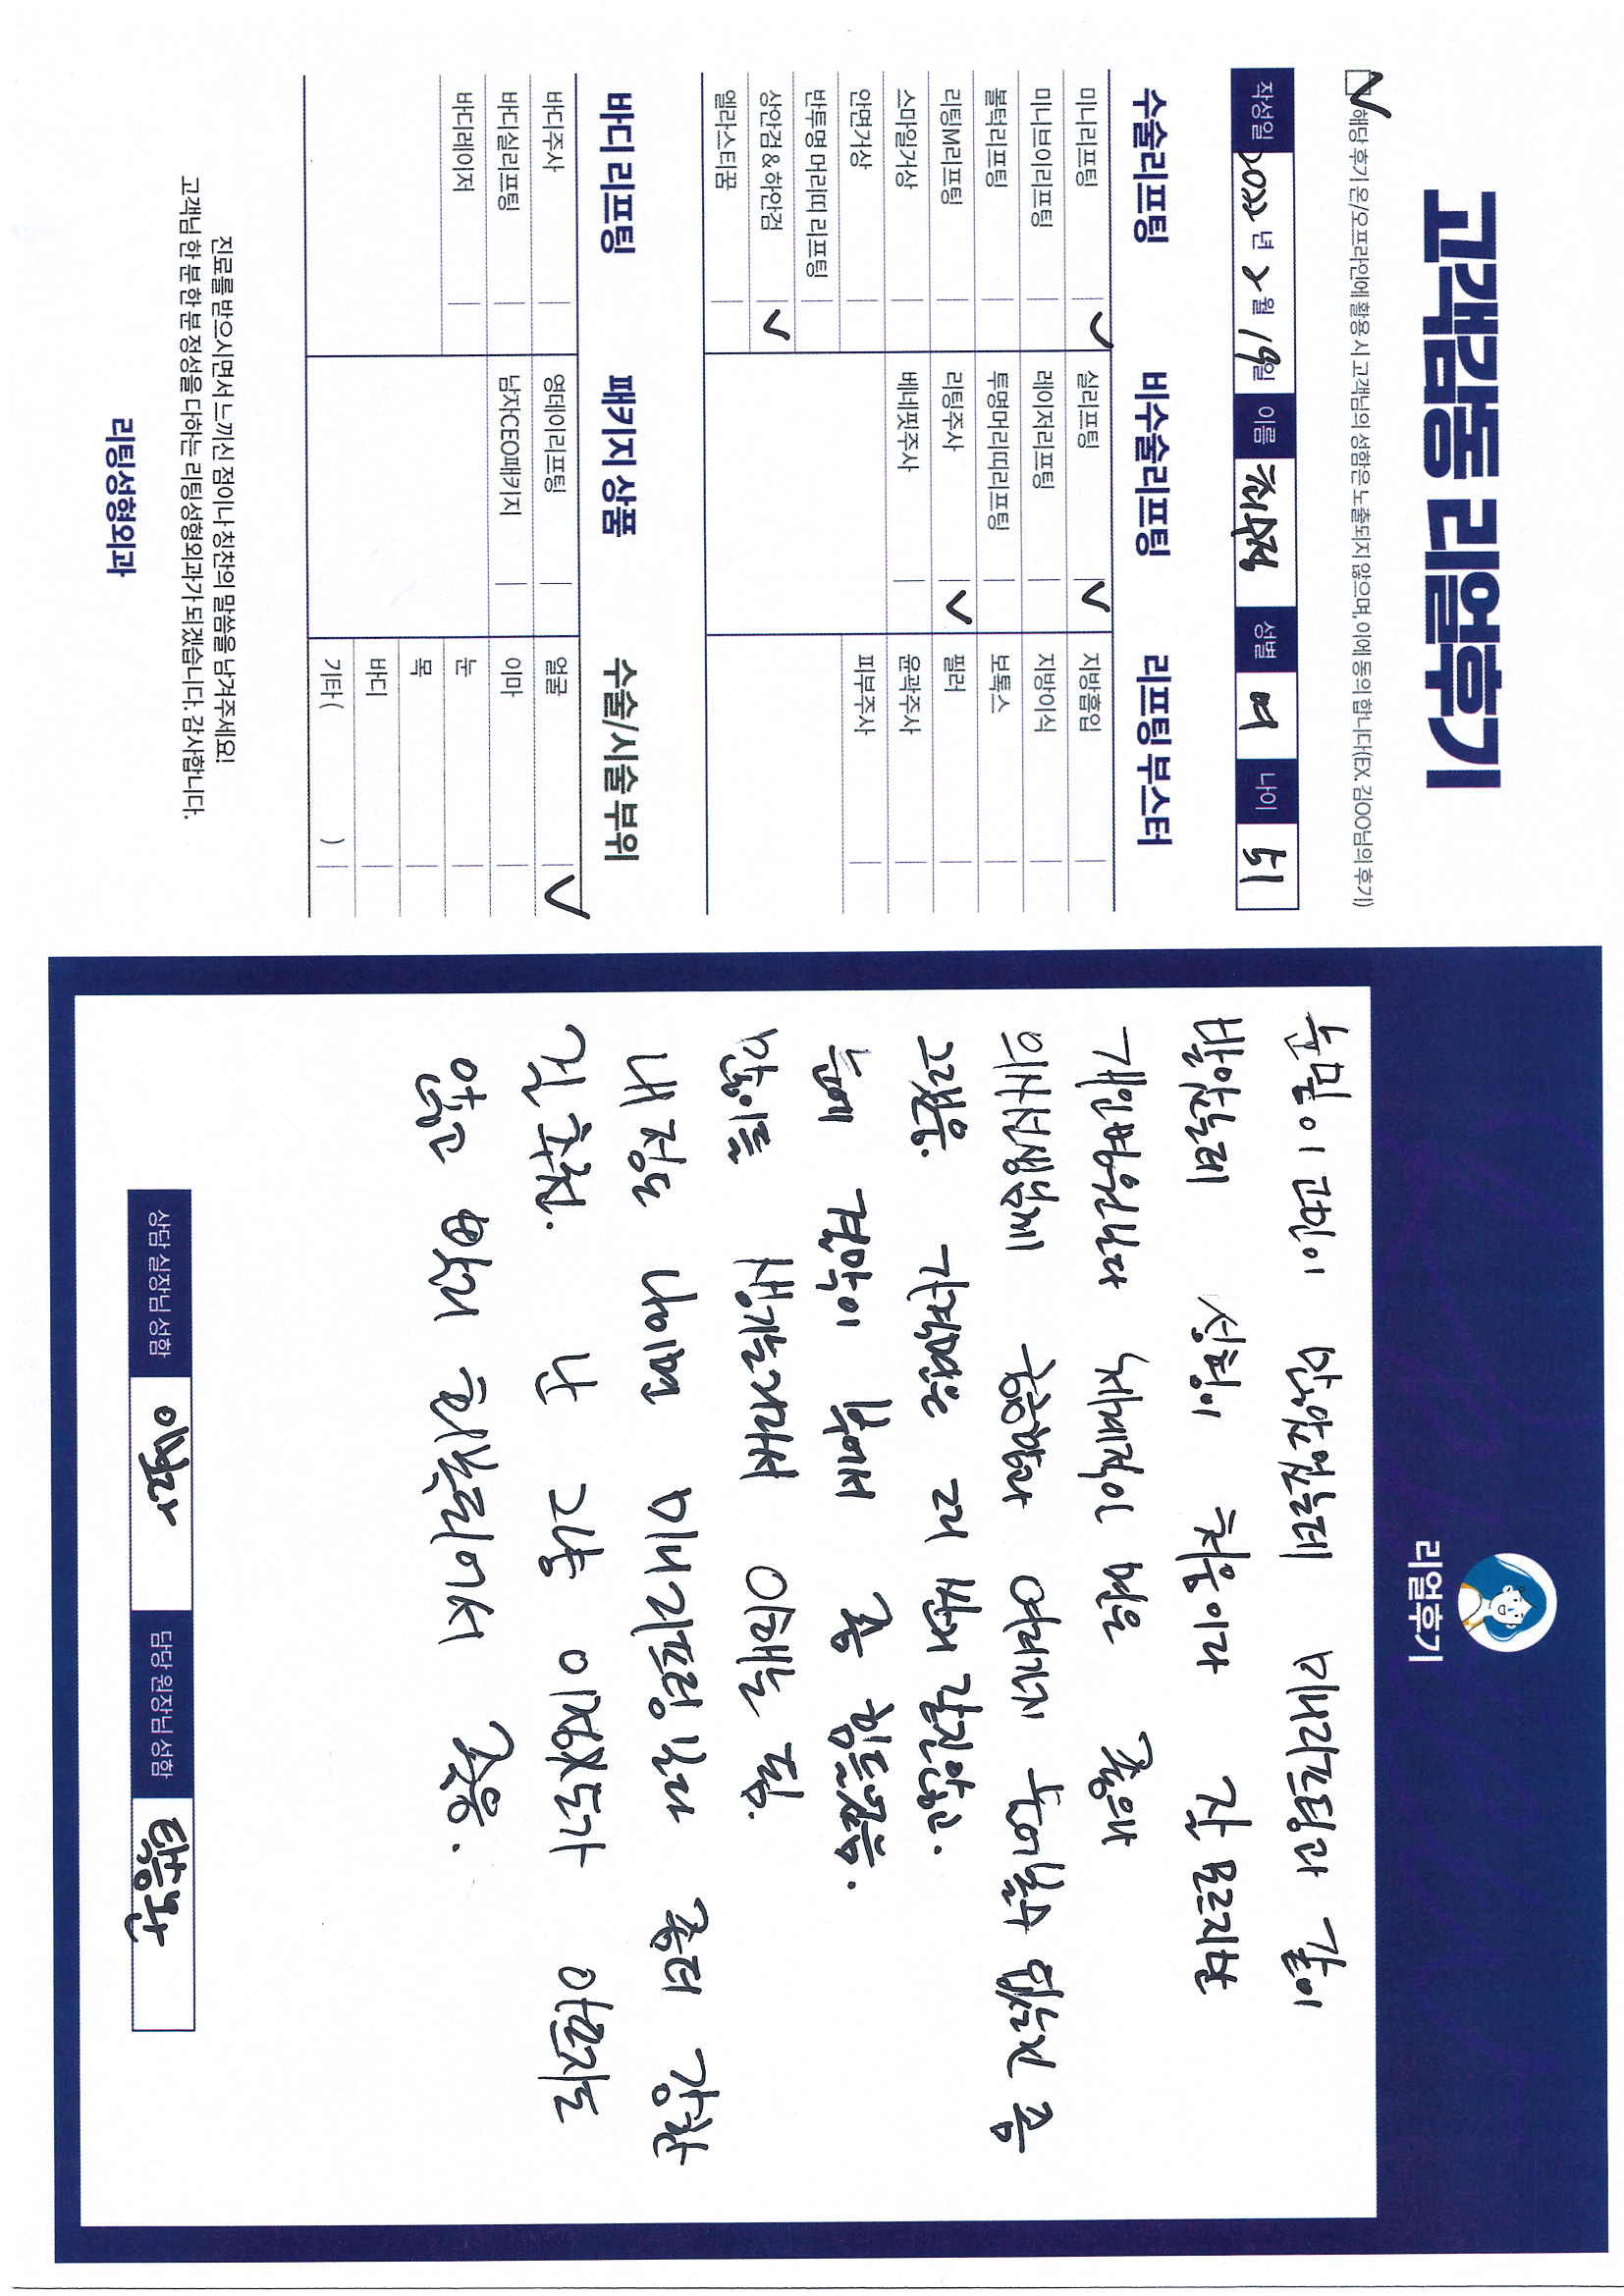 고객감동 리얼후기
해당 후기 온/오프라인에 활용 시 고객님의 성함은 노출되지 않으며, 이에 동의 합니다(EX. 김OO님의 후기)
작성일 2022 년 2 월 19일 이름 최수정 성별 여 나이 51
수술리프팅 비수술리프팅 리프팅 부스터
미니리프팅 실리프팅 지방흡입
미니브이리프팅 레이저리프팅 지방이식
볼턱리프팅 투명머리띠리프팅 보톡스
리팅M리프팅 리팅주사 필러
스마일거상 베네핏주사 윤곽주사
안면거상 피부주사
반투명 머리띠 리프팅
상안검&하안검
엘라스티꿈
바디 리프팅 패키지 상품 수술/시술 부위
바디주사 영데이리프팅 얼굴
바디실리프팅 남자CEO패키지 이마
바디레이저 눈
목
바디
기타 ( )
진료를 받으시면서 느끼신 점이나 칭찬의 말씀을 남겨주세요!
고객님 한 분 한 분 정성을 다하는 리팅성형외과가 되겠습니다. 감사합니다.
리팅성형외과
리얼후기
눈밑이 고민이 많았었는데 미니리프팅과 같이
받았는데 성형이 처음이라 잘 모르지만
개인병원보다 체계적이 면은 좋으나
의사선생님께 궁금한걸 여러가지 물어볼수 없는게 좀
그랬음. 가격면은 그리 싸지 같진않고.
눈에 결막이 부어서 좀 힘드셨음.
만족이를 생기는거라서 이해는 됨.
내 정도 나이면 미니리프팅 보다 좀더 강한
걸 추천. 난 그냥 이정도가 아프지도
않고 빨리 회복되어서 좋음.
상담 실장님 성함 이보라 담당 원장님 성함 탁승환